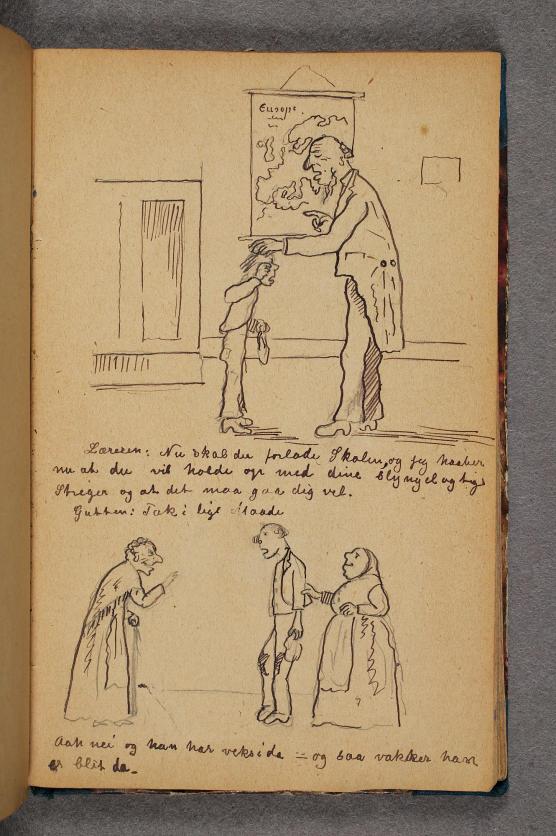 Europa
Læreren: Nu skal du forlade Skolen, og jeg haaber
nu at du vil holde op med dine
Streger og at det maa gaa dig vel.
Gutten: Tak i lige Maade
Aah nei og han har veks ida – og saa vakker han
er blit da.